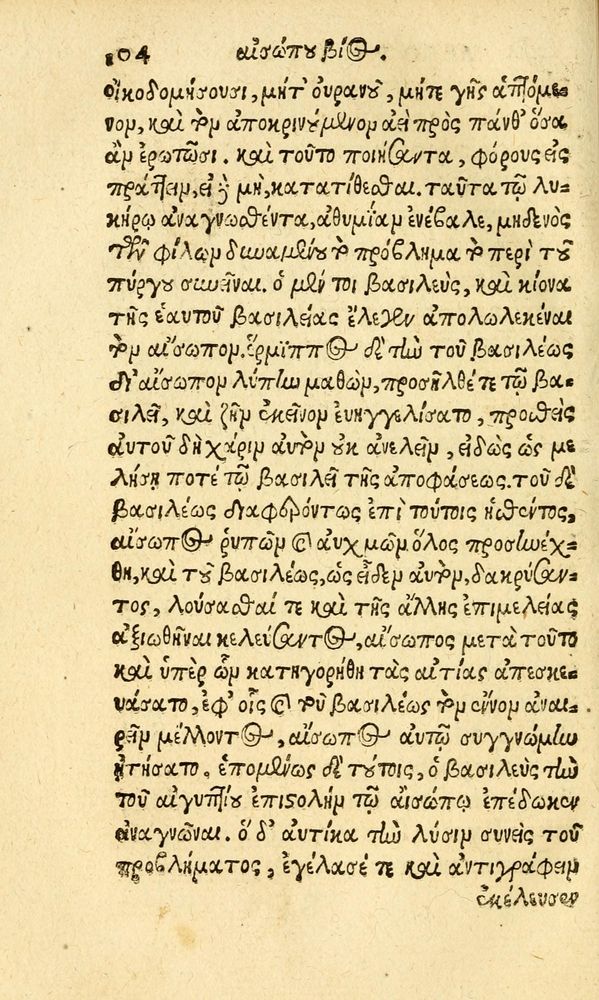 104 αἰσώπου βίος.
οἰκοδομήσουσι, μήτ' ὀυρανοῦ, μήτε γῆς ἁπτόμε-
νον, καὶ τὸν ἀποκρινούμενον ἀεὶ πρὸς πάνθ' ὅσα
ἂν ἐρωτῶσι. καὶ τοῦτο ποιήσαντα, φόρους εἰς
πράττειν, εἰ δὲ μὴ, κατατίθεσθαι. ταῦτα τῷ λυ-
κήρῳ ἀναγνωσθέντα, ἀθυμίαν ἐνέβαλε, μηδενὸς
τῶν φίλων δυναμένου τὸ πρόβλημα τὸ περὶ τοῦ
πύργου συνεῖναι. ὁ μέν τοι βασιλεὺς, καὶ κίονα
τῆς ἑαυτοῦ βασιλείας ἔλεγεν ἀπολωλεκέναι
τὸν αἴσωπον. ἕρμιππος δὲ τὴν τοῦ βασιλέως
δι' αἴσωπον λύπην μαθὼν, προσῆλθέ τε τῷ βα-
σιλεῖ, καὶ ζῆν ἐκεῖνον ἐυηγγελίσατο, προσθεὶς
ἀυτοῦ δὴ χάριν ἀυτὸν οὐκ ἀνελεῖν, εἰδὼς ὡς με
λήσῃ ποτέ τῷ βασιλεῖ τῆς ἀποφάσεως. τοῦ δὲ
βασιλέως διαφερόντως ἐπὶ τούτοις ἡσθέντος,
αἴσωπος ῥυπῶν καὶ ἀυχμῶν ὅλος προσηνέχ-
θη, καὶ τοῦ βασιλέως, ὡς εἶδεν ἀυτὸν, δακρύσαν-
τος, λούσασθαί τε καὶ τῆς ἄλλης ἐπιμελείας
ἀξιωθῆναι κελεύσαντος, αἴσωπος μετὰ τοῦτο
καὶ ὑπὲρ ὧν κατηγορήθη τὰς αἰτίας ἀπεσκε-
υάσατο, ἐφ' οἷς καὶ τοῦ βασιλέως τὸν αἶνον ἀναι-
ρεῖν μέλλοντος, αἴσωπος ἀυτῷ συγγνώμην
ᾐτήσατο. ἑπομένως δὲ τούτοις, ὁ βασιλεὺς τὴν
τοῦ αἰγυπτίου ἐπιστολὴν τῷ αἰσώπῳ ἐπέδωκεν
ἀναγνῶναι. ὁ δ' ἀυτίκα τὴν λύσιν συνεὶς τοῦ
προβλήματος, ἐγέλασέ τε καὶ ἀντιγράφειν
ἐκέλευσεν